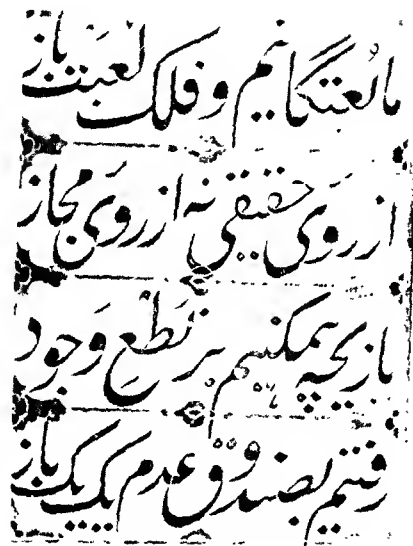 ما لعبتگانیم و فلک لعبت باز
از روی حقیقی نه از روی مجاز
بازیچه همی کنیم بر نطع وجود
رفتیم بصندوق عدم یک یک باز